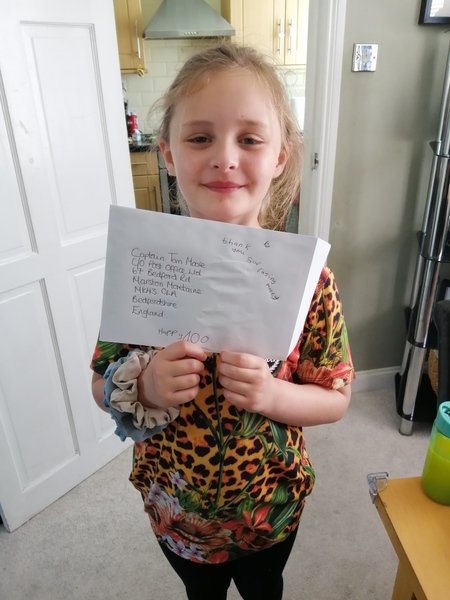 Captain Tom Moore
C/O Post Office Ltd
67 Bedford Rd
Marston Moretaine
MK43 0LA
Bedfordshire
England
Happy 100
thank
you sir